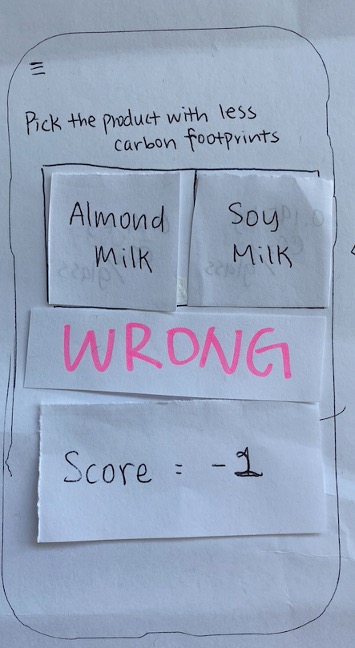 Pick the product with less
carbon footprints
Almond
Milk
Soy
Milk
WRONG
Score = -1